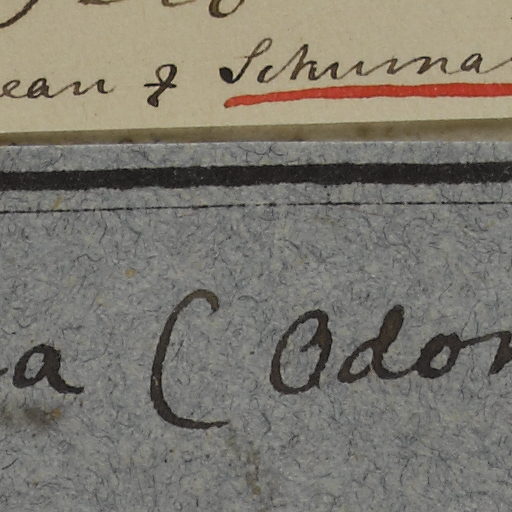 ean & Schuma
a (Odon